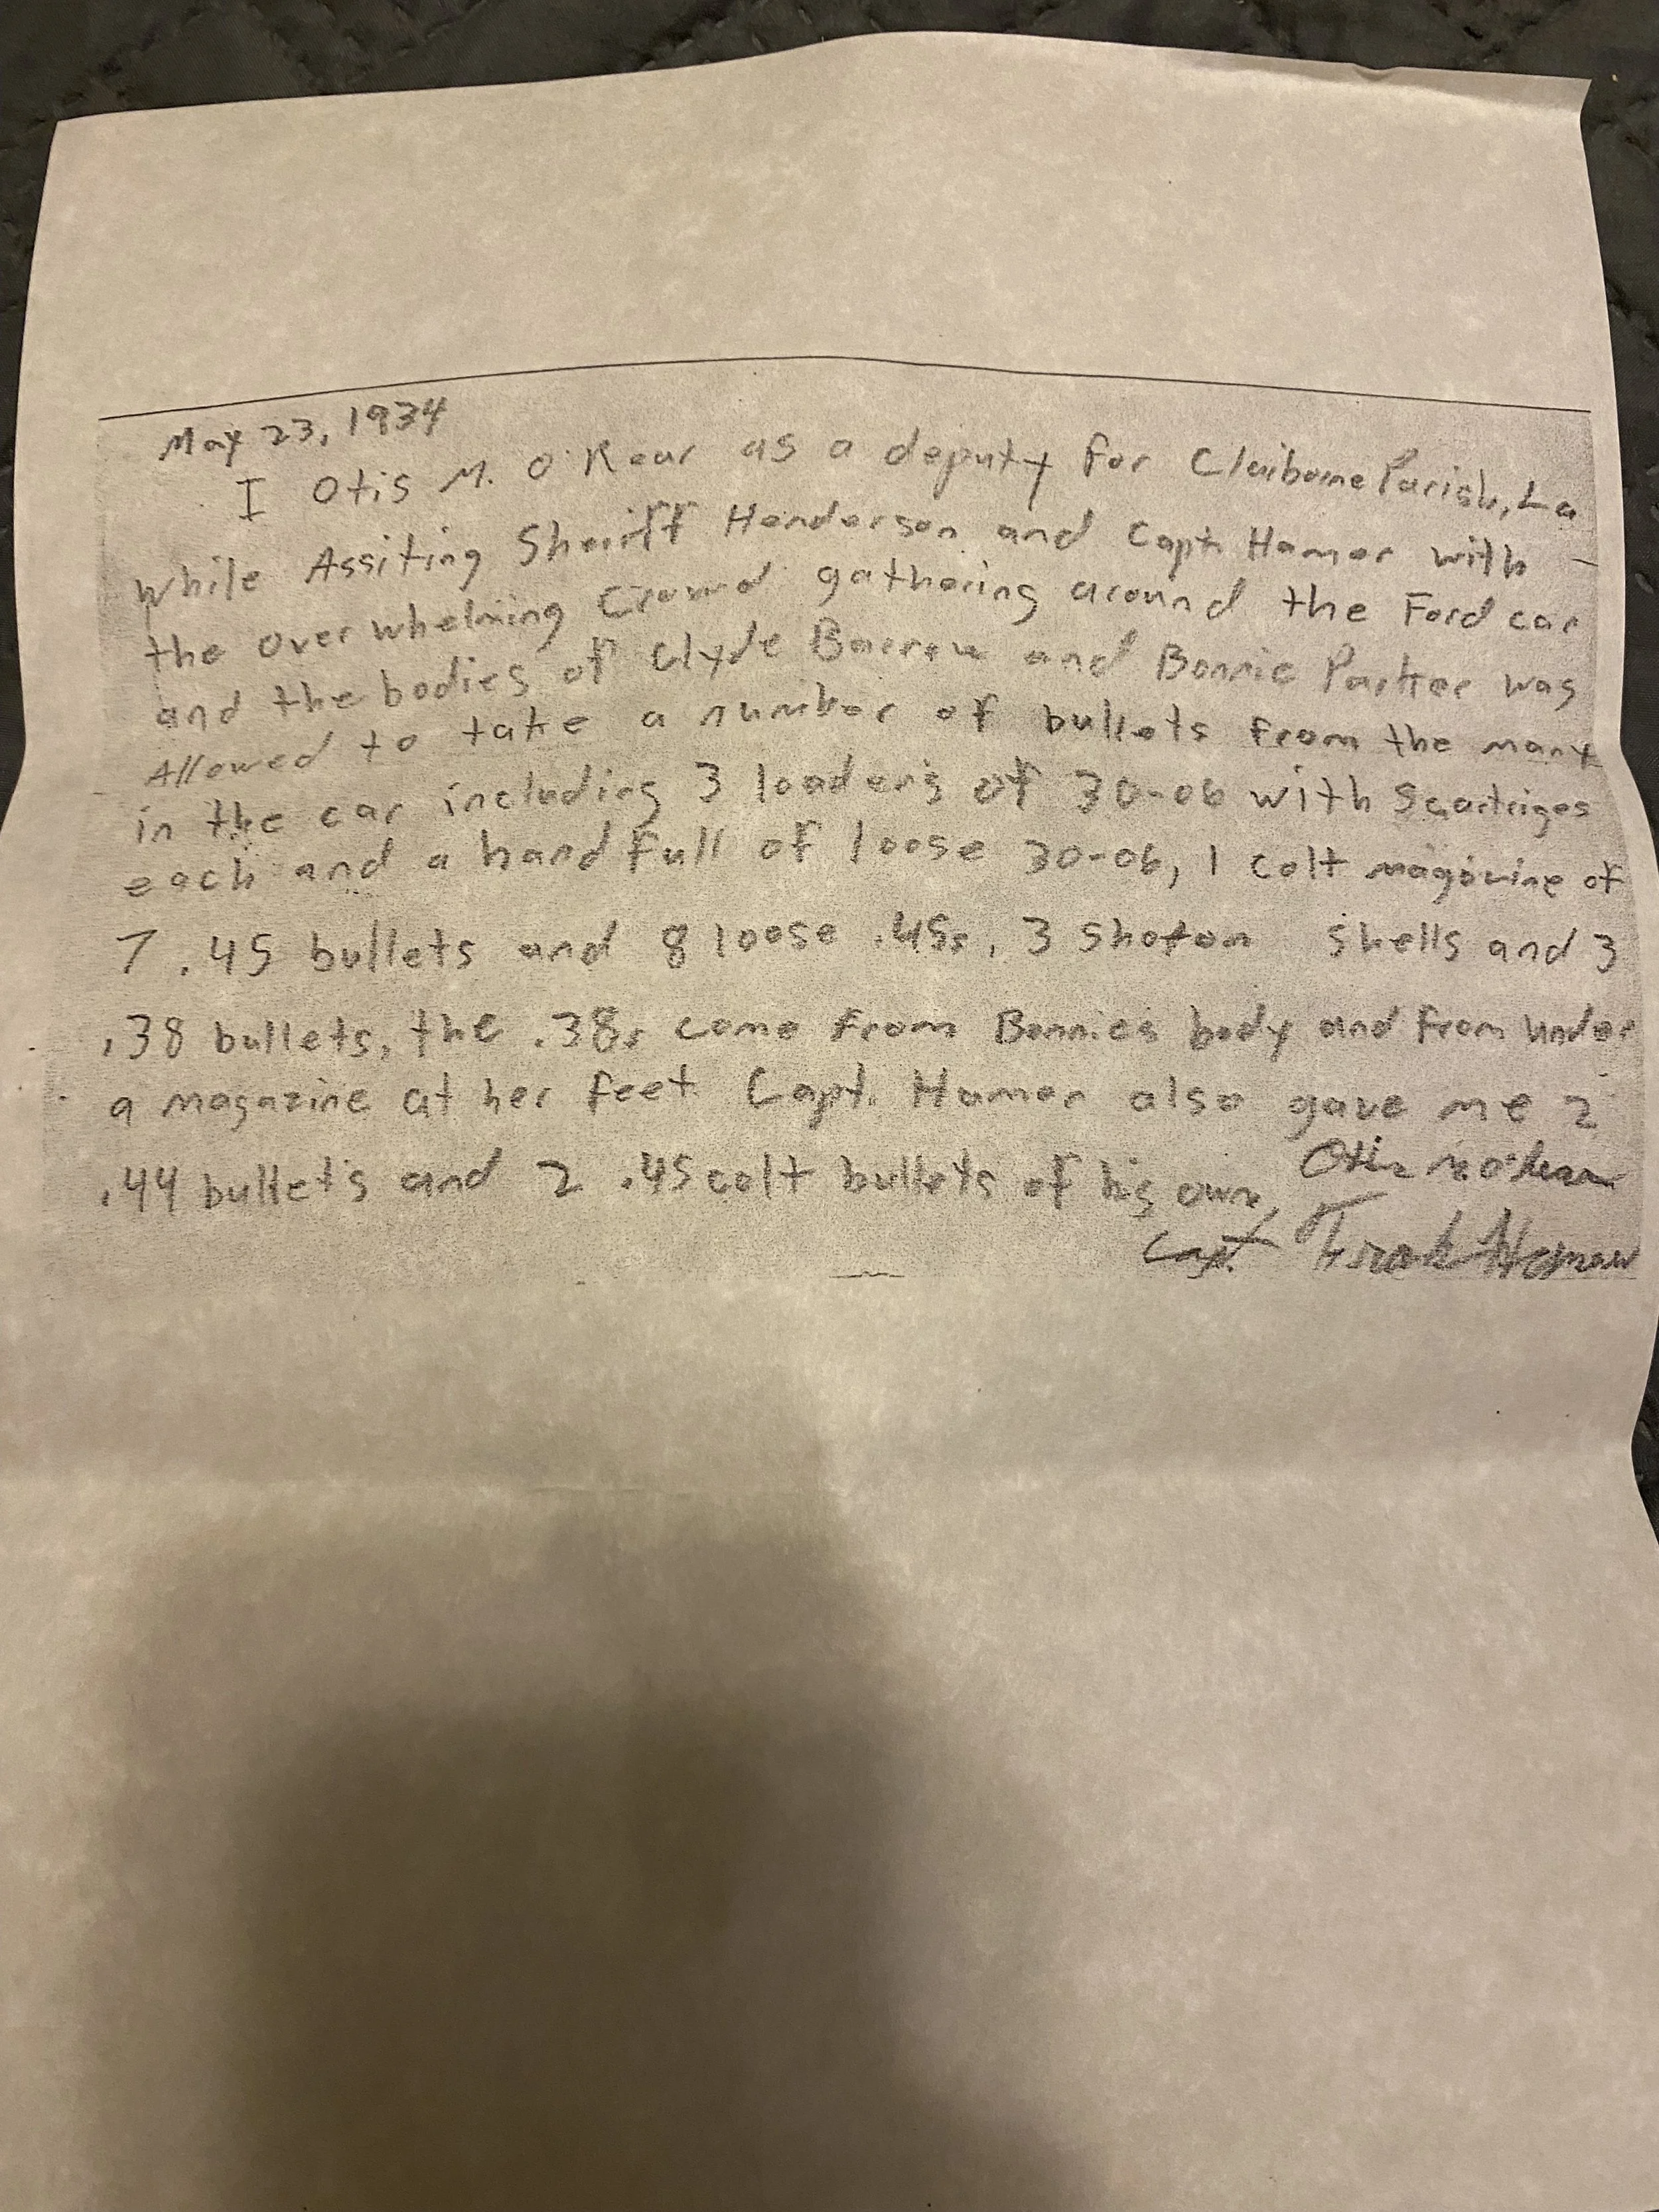 May 23, 1934
I Otis M. O'Kear as a deputy for Claiborne Parish, La
while Assiting Sheriff Henderson and Capt. Hamer with
the over whelming Crowd gathering around the Ford car
and the bodies of Clyde Barrow and Bonnie Parker was
Allowed to take a number of bullets from the many
in the car including 3 loaders of 30-06 with 5 cartriges
each and a hand full of loose 30-06, 1 colt magazine of
7 .45 bullets and 8 loose .45s, 3 shells and 3
.38 bullets, the .38s come from Bonnies body and from under
a magazine at her feet Capt. Hamer also gave me 2
.44 bullets and 2 .45 colt bullets of his own,
Otis M O'Kear
Capt. Frank Hamer